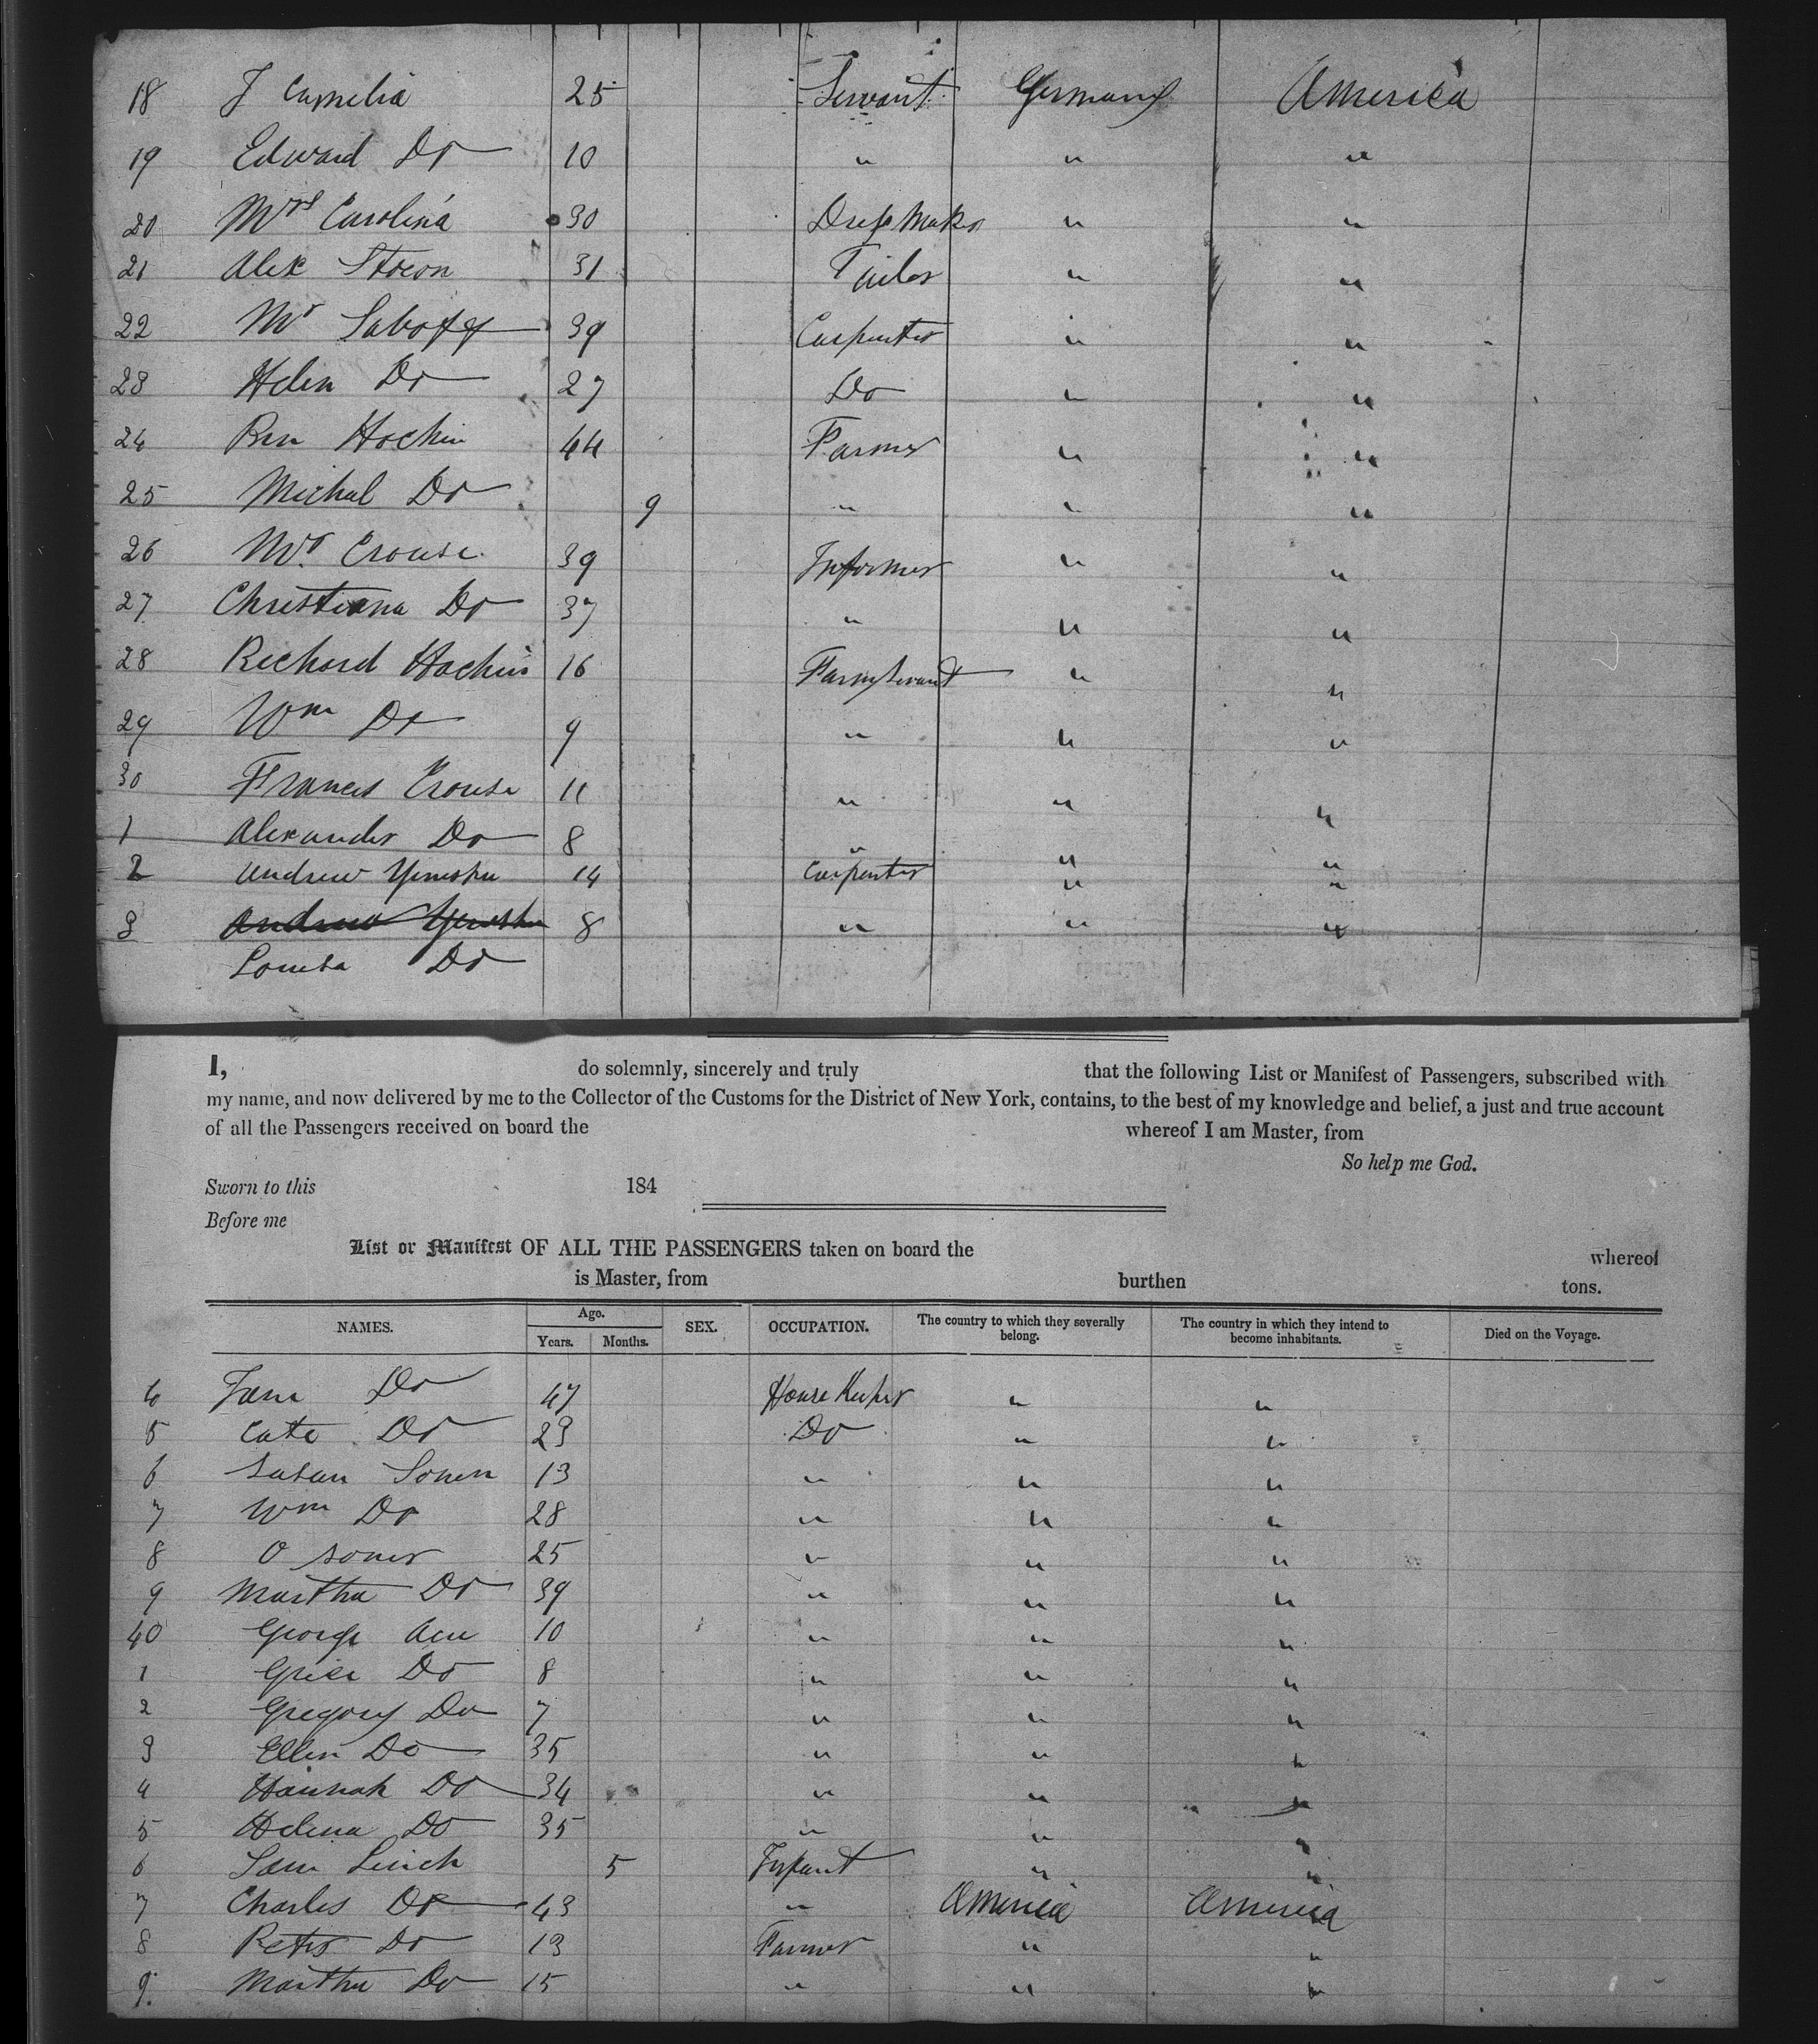 18 J Camelia 25 Servant Germany America
19 Edward Do 10 " " "
20 Mrs Carolina 30 Dress Maker " "
21 Alex 31 Tailor " "
22 Mr 39 Carpenter " "
23 Helen Do 27 Do " "
24 Ben Hochin 44 Farmer " "
25 Michal Do 9 " " "
26 Mr. Crouse 39 Informer " "
27 Christiana Do 37 " " "
28 Richard Hochin 16 Farm Servant " "
29 Wm Do 9 " " "
30 Frances Crouse 11 " " "
1 Alexander Do 8 " " "
2 Andrew 14 Carpenter " "
3 Andrew 8 " " "
Louisa Do
I, do solemnly, sincerely and truly that the following List or Manifest of Passengers, subscribed with
my name, and now delivered by me to the Collector of the Customs for the District of New York, contains, to the best of my knowledge and belief, a just and true account
of all the Passengers received on board the whereof I am Master, from
So help me God.
Sworn to this 184
Before me
List or Manifest OF ALL THE PASSENGERS taken on board the whereof
is Master, from burthen tons.
NAMES. Age. SEX. OCCUPATION. The country to which they severally belong. The country in which they intend to become inhabitants. Died on the Voyage.
Years. Months.
4 Jane Do 47 House Keeper " "
5 Cate Do 23 Do " "
6 Susan 13 " " "
7 Wm Do 28 " " "
8 O 25 " " "
9 Martha Do 39 " " "
40 George 10 " " "
1 Do 8 " " "
2 Gregory Do 7 " " "
3 Ellen Do 35 " " "
4 Hannah Do 34 " " "
5 Helena Do 35 " " "
6 Linch 5 Infant " "
7 Charles Do 43 " America America
8 Peter Do 13 Farmer " "
9. Martha Do 15 " " "